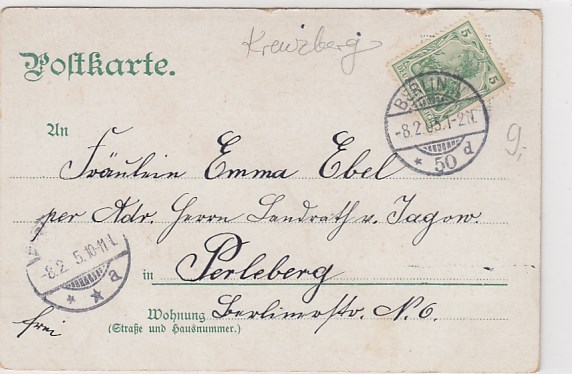 Kreuzberg
Postkarte.
5 5
BERLIN
-8.2.05.1-2N.
* 50 d
9,-
An
Fräulein Emma Ebel
per Adr. Herrn Landrath v. Jagow.
-8.2 5.10-11 1.
* * a
in Perleberg
Wohnung Berlinerstr. N. 6.
(Straße und Hausnummer.)
frei